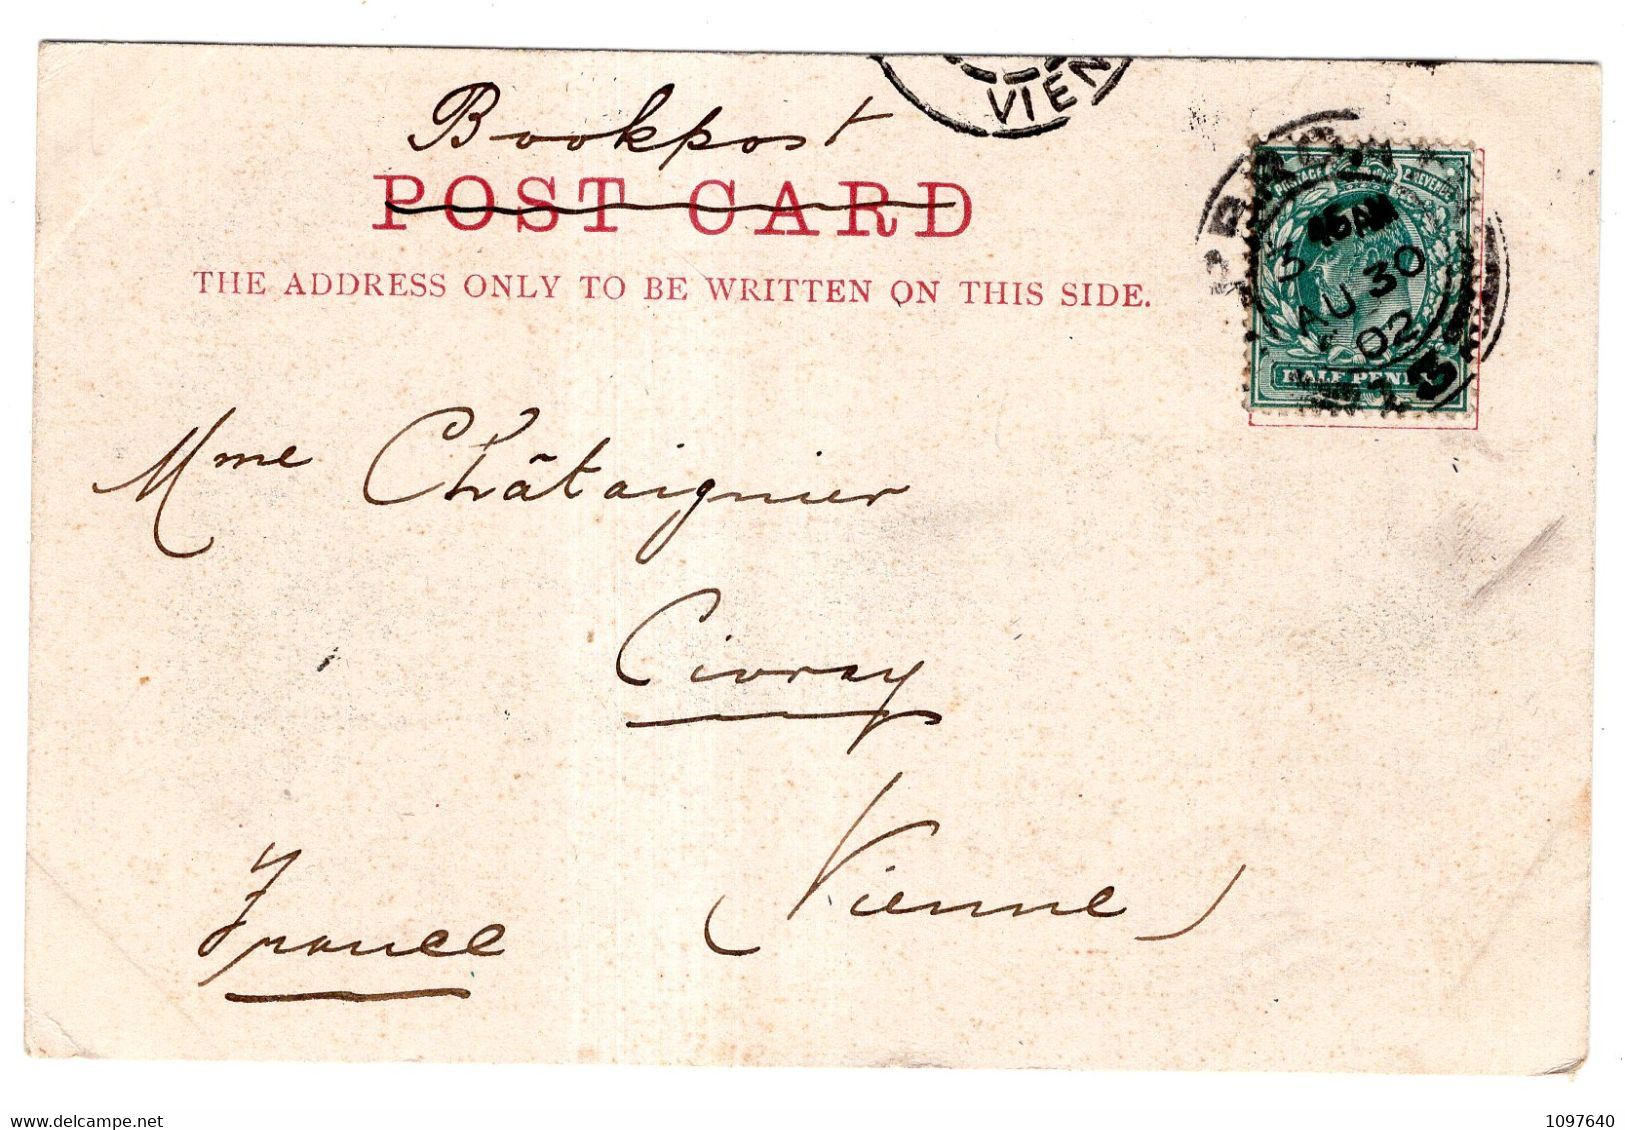 VIEN
Bookpost
POST CARD
THE ADDRESS ONLY TO BE WRITTEN ON THIS SIDE.
POSTAGE & REVENUE
45 AM
AU 30
02
HALF PENNY
Mme Châtaignier
Civray
(Vienne)
France
www.delcampe.net
1097640